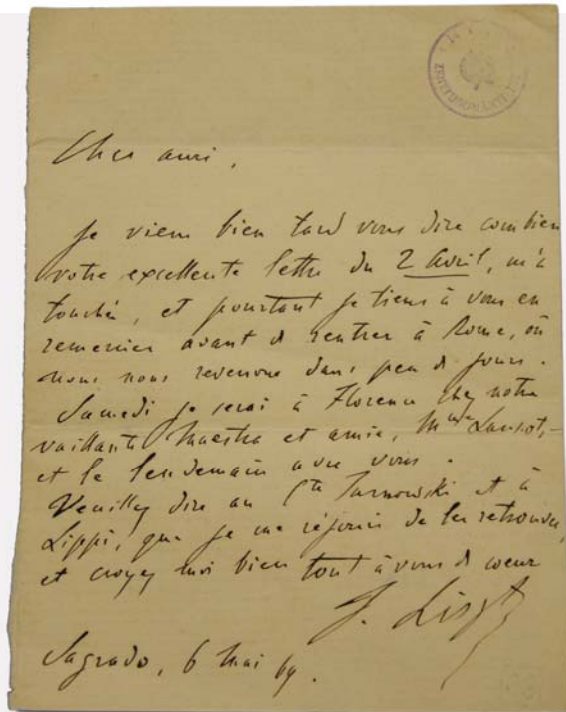 Cher ami,
Je viens bien tard vous dire combien
votre excellente lettre du 2 Avril, m'a
touché, et pourtant je tiens à vous en
remercier avant de rentrer à Rome, où
nous nous reverrons dans peu de jours.
Samedi je serai à Florence chez notre
vaillante Maestra et amie, Mme Laussot,
et le lendemain avec vous.
Veuillez dire au Cte Tarnowski et à
Lippi, que je me réjouis de les retrouver,
et croyez moi bien tout à vous de coeur
F. Liszt
Sagrado, 6 Mai 69.